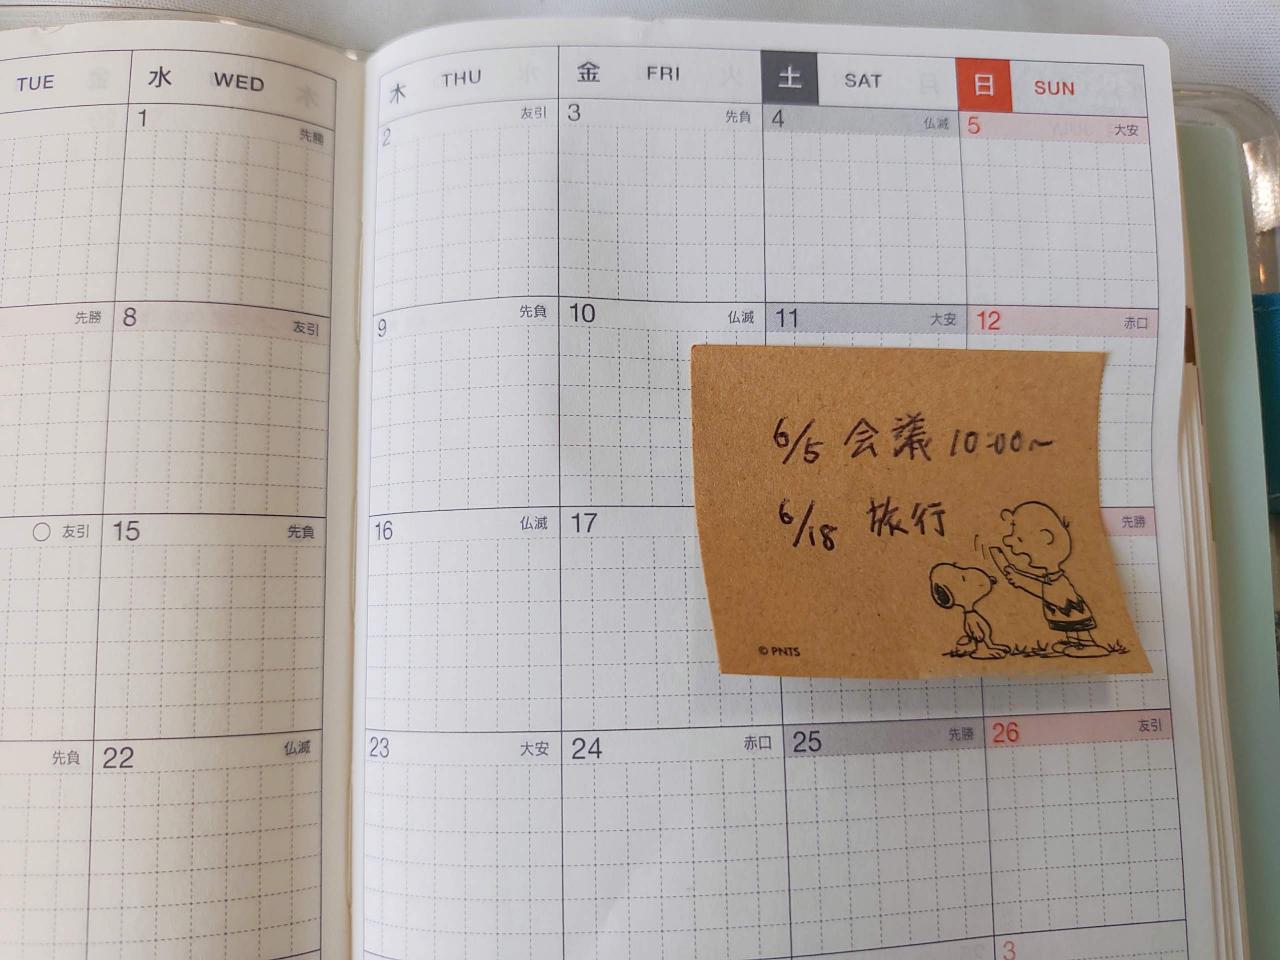 TUE 水 WED 木 THU 金 FRI 土 SAT 日 SUN
1 先勝 2 友引 3 先負 4 仏滅 5 大安
先勝 8 友引 9 先負 10 仏滅 11 大安 12 赤口
友引 15 先負 16 仏滅 17 先勝
先負 22 仏滅 23 大安 24 赤口 25 先勝 26 友引
3
6/5 会議 10:00~
6/18 旅行
© PNTS